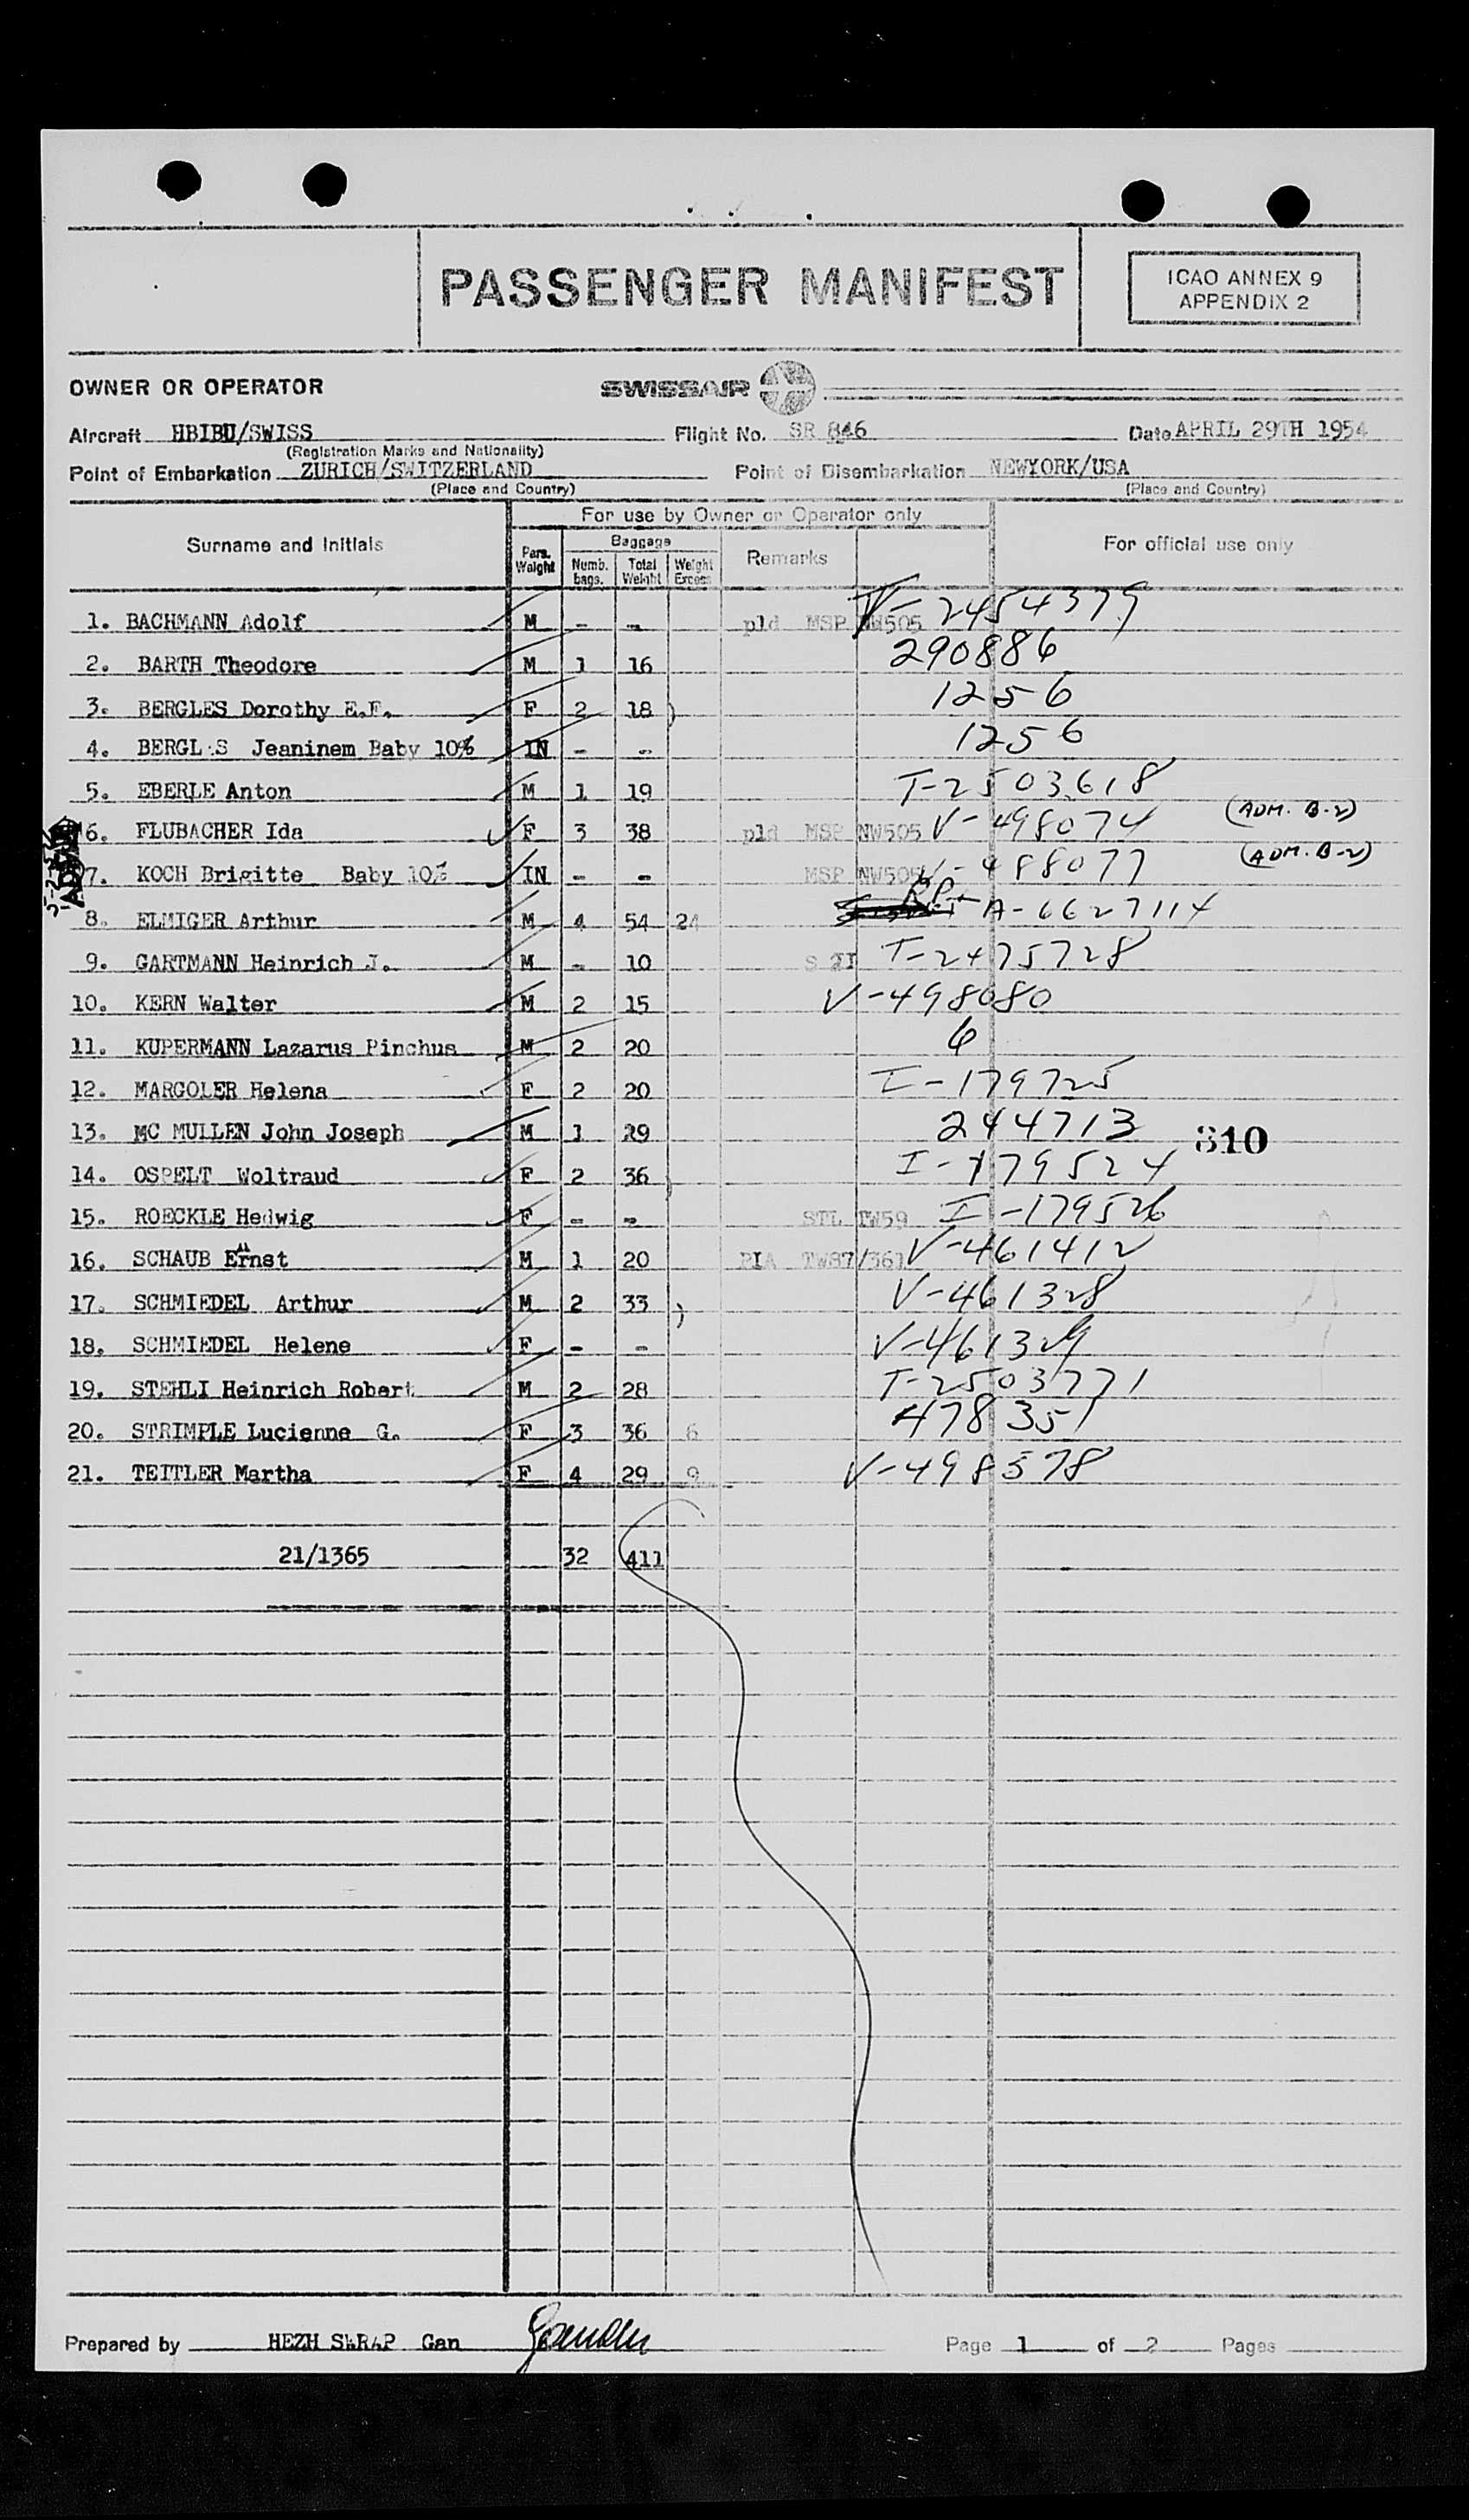 PASSENGER MANIFEST
ICAO ANNEX 9
APPENDIX 2
OWNER OR OPERATOR SWISSAIR
Aircraft HBIBU/SWISS Flight No. SR 846 Date APRIL 29TH 1954
(Registration Marks and Nationality)
Point of Embarkation ZURICH/SWITZERLAND Point of Disembarkation NEWYORK/USA
(Place and Country) (Place and Country)
For use by Owner or Operator only
Surname and Initials Pars. Weight Baggage Numb. bags. Total Weight Weight Excess Remarks For official use only
1. BACHMANN Adolf M - - pld MSP NW505 V-2454379
2. BARTH Theodore M 1 16 290886
3. BERGLES Dorothy E.F. F 2 18 ) 1256
4. BERGL S Jeaninem Baby 10% IN - - 1256
5. EBERLE Anton M 1 19 T-2503618
6. FLUBACHER Ida F 3 38 pld MSP NW505 V-498074 (ADM. B-2)
7. KOCH Brigitte Baby 10% IN - - MSP NW505 V-488077 (ADM. B-2)
8. ELMIGER Arthur M 4 54 24 A-6627114
9. GARTMANN Heinrich J. M - 10 T-2475728
10. KERN Walter M 2 15 V-498080
11. KUPERMANN Lazarus Pinchus M 2 20 6
12. MARGOLER Helena F 2 20 I-179725
13. MC MULLEN John Joseph M 1 29 244713 310
14. OSPELT Woltraud F 2 36 ) I-179524
15. ROECKLE Hedwig F - - STL TW59 I-179526
16. SCHAUB Ernst M 1 20 PIA TW87/361 V-461412
17. SCHMIEDEL Arthur M 2 33 ) V-461328
18. SCHMIEDEL Helene F - - V-461329
19. STEHLI Heinrich Robert M 2 28 T-2503771
20. STRIMPLE Lucienne G. F 3 36 6 478351
21. TEITLER Martha F 4 29 9 V-498578
21/1365 32 411
Prepared by HEZH SWRAP Gan Page 1 of 2 Pages